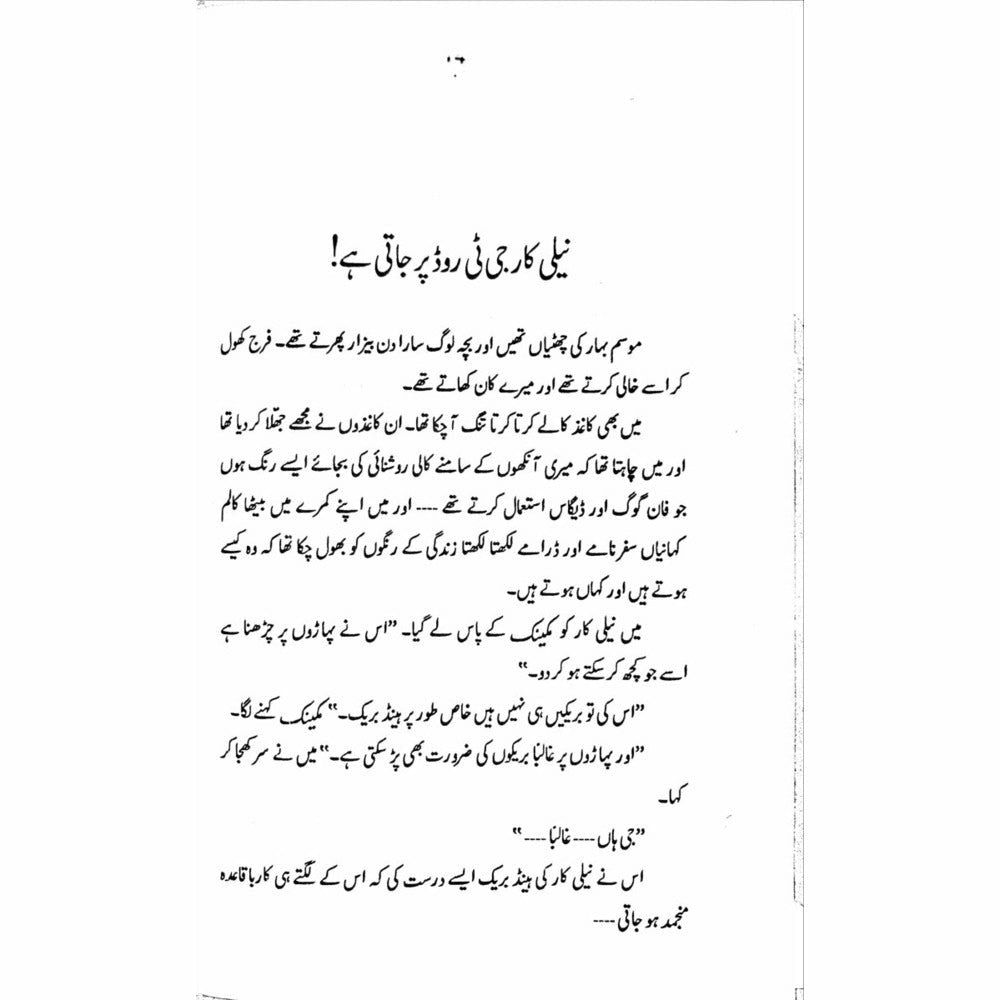 نیلی کار جی ٹی روڈ پر جاتی ہے!
موسم بہار کی چھٹیاں تھیں اور بچہ لوگ سارا دن بیزار پھرتے تھے۔ فرج کھول
کر اسے خالی کرتے تھے اور میرے کان کھاتے تھے۔
میں بھی کاغذ کالے کرتا کرتا تنگ آ چکا تھا۔ ان کاغذوں نے مجھے جھلّا کر دیا تھا
اور میں چاہتا تھا کہ میری آنکھوں کے سامنے کالی روشنائی کی بجائے ایسے رنگ ہوں
جو فان گوگ اور ڈیگاس استعمال کرتے تھے ---- اور میں اپنے کمرے میں بیٹھا کالم
کہانیاں سفرنامے اور ڈرامے لکھتا لکھتا زندگی کے رنگوں کو بھول چکا تھا کہ وہ کیسے
ہوتے ہیں اور کہاں ہوتے ہیں۔
میں نیلی کار کو مکینک کے پاس لے گیا۔ ”اس نے پہاڑوں پر چڑھنا ہے
اسے جو کچھ کر سکتے ہو کر دو۔“
”اس کی تو بریکیں ہی نہیں ہیں خاص طور پر ہینڈ بریک۔“ مکینک کہنے لگا۔
”اور پہاڑوں پر غالبًا بریکوں کی ضرورت بھی پڑ سکتی ہے۔“ میں نے سر کھجا کر
کہا۔
”جی ہاں ---- غالبًا ----“
اس نے نیلی کار کی ہینڈ بریک ایسے درست کی کہ اس کے لگتے ہی کار باقاعدہ
منجمد ہو جاتی ----